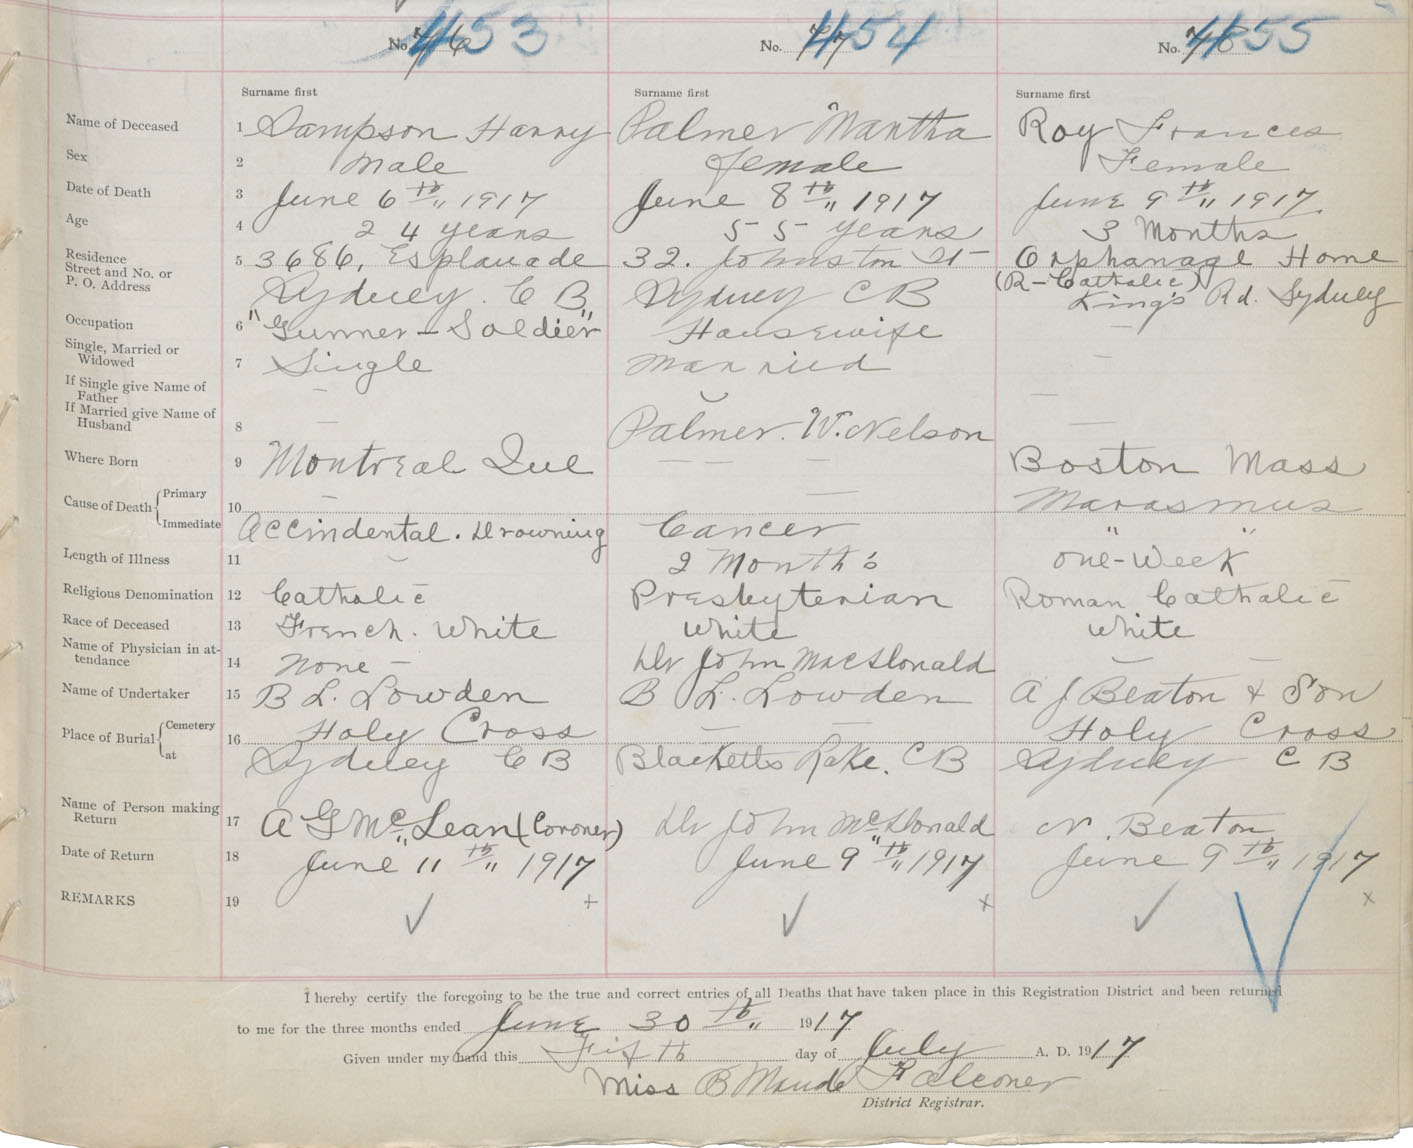 No. 76 453 No. 77 454 No. 78 455
Surname first Surname first Surname first
Name of Deceased 1 Sampson Harry Palmer Martha Roy Frances
Sex 2 Male female Female
Date of Death 3 June 6th,, 1917 June 8th,, 1917 June 9th,, 1917
Age 4 24 years 55 years 3 Months
Residence 5 3686, Esplanade 32. Johnston St Orphanage Home
Street and No. or P. O. Address Sydney. C B,, Sydney C B (R-Catholic) King's Rd. Sydney
Occupation 6 "Gunner - Soldier" Housewife —
Single, Married or Widowed 7 Single Married —
If Single give Name of Father — —
If Married give Name of Husband 8 — Palmer. W. Nelson —
Where Born 9 Montreal Que — — — Boston Mass
Cause of Death Primary — — Marasmus
10
Immediate Accindental. Drowning Cancer " "
Length of Illness 11 – 2 Month's one-week
Religious Denomination 12 Catholic Presbyterian Roman Catholic
Race of Deceased 13 French. White White White
Name of Physician in attendance 14 None – Dr John MacDonald — —
Name of Undertaker 15 B L. Lowden B L. Lowden A J Beaton & Son
Place of Burial Cemetery 16 Holy Cross — — Holy Cross
at Sydney C B Blacketts Lake. C B Sydney C B
Name of Person making Return 17 A G Mc,, Lean (Coroner) Dr John Mc,, Donald N. Beaton
Date of Return 18 June 11th,, 1917 June 9th,, 1917 June 9th,, 1917
REMARKS 19 ✓ + ✓ x ✓ x
I hereby certify the foregoing to be the true and correct entries of all Deaths that have taken place in this Registration District and been returned
to me for the three months ended June 30th,, 1917
Given under my hand this Fifth day of July A. D. 1917
Miss B Maude Falconer
District Registrar.